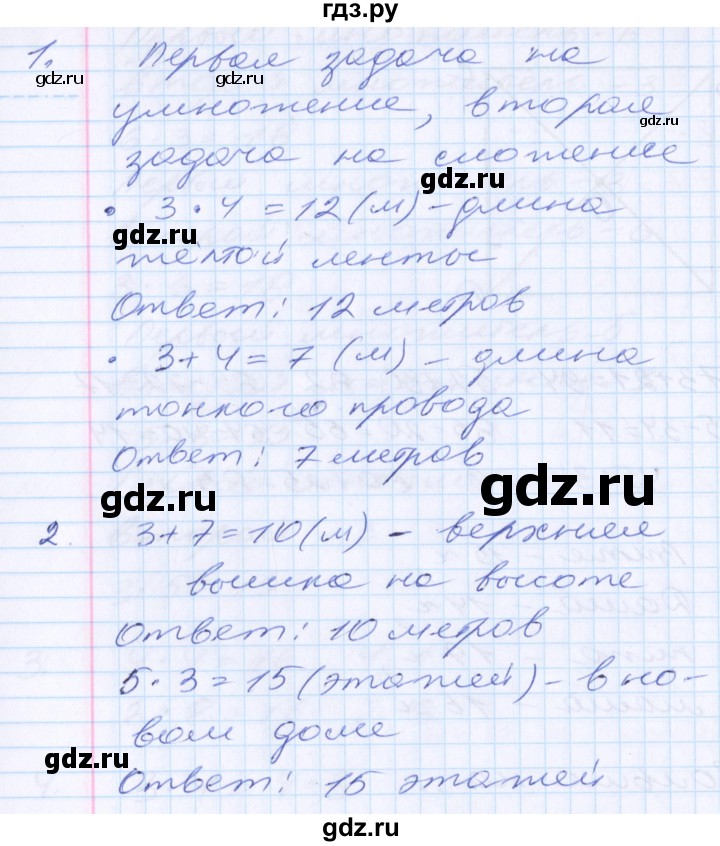 гдз.ру
1. Первая задача на
умножение, вторая
задача на сложение
• 3 · 4 = 12 (м) - длина
жёлтой ленты
Ответ: 12 метров
• 3 + 4 = 7 (м) - длина
тонкого провода
Ответ: 7 метров
2. 3 + 7 = 10 (м) - верхняя
вышка на высоте
Ответ: 10 метров
5 · 3 = 15 (этажей) - в но-
вом доме
Ответ: 15 этажей
gdz.ru
gdz.ru
gdz.ru
gdz.ru
gdz.ru
gdz.ru
gdz.ru
gdz.ru
gdz.ru
gdz.ru
gdz.ru